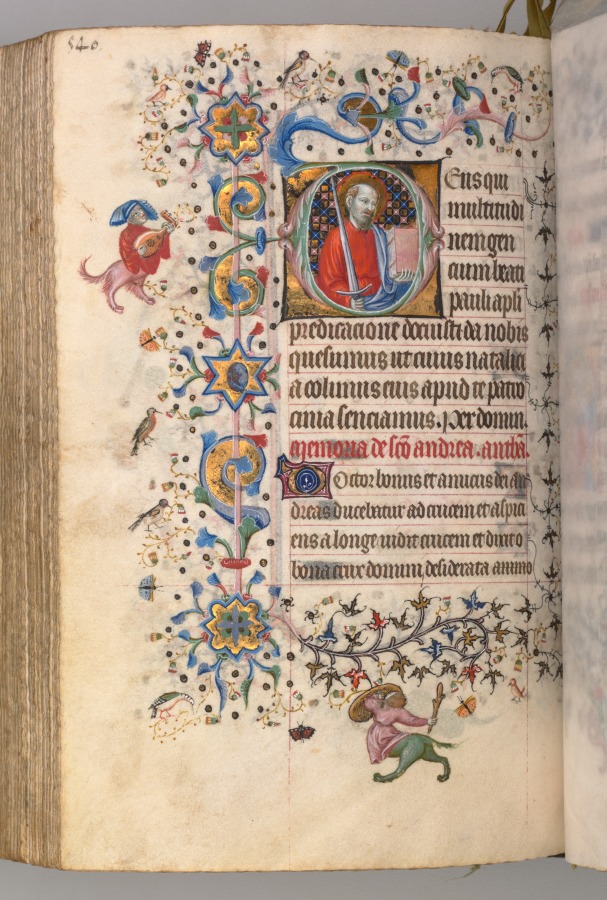 540
Deus qui
multitudi
nem gen
cium beati
pauli apli
predicacione docuisti da nobis
quesumus ut cuius natalici
a colimus eius apud te patro
cinia senciamus. Per domin.
memoria de sco andrea. antha.
Doctor bonus et amicus dei an
dreas ducebatur ad crucem et aspici
ens a longe vidit crucem et dixit o
bona crux domini desiderata animo